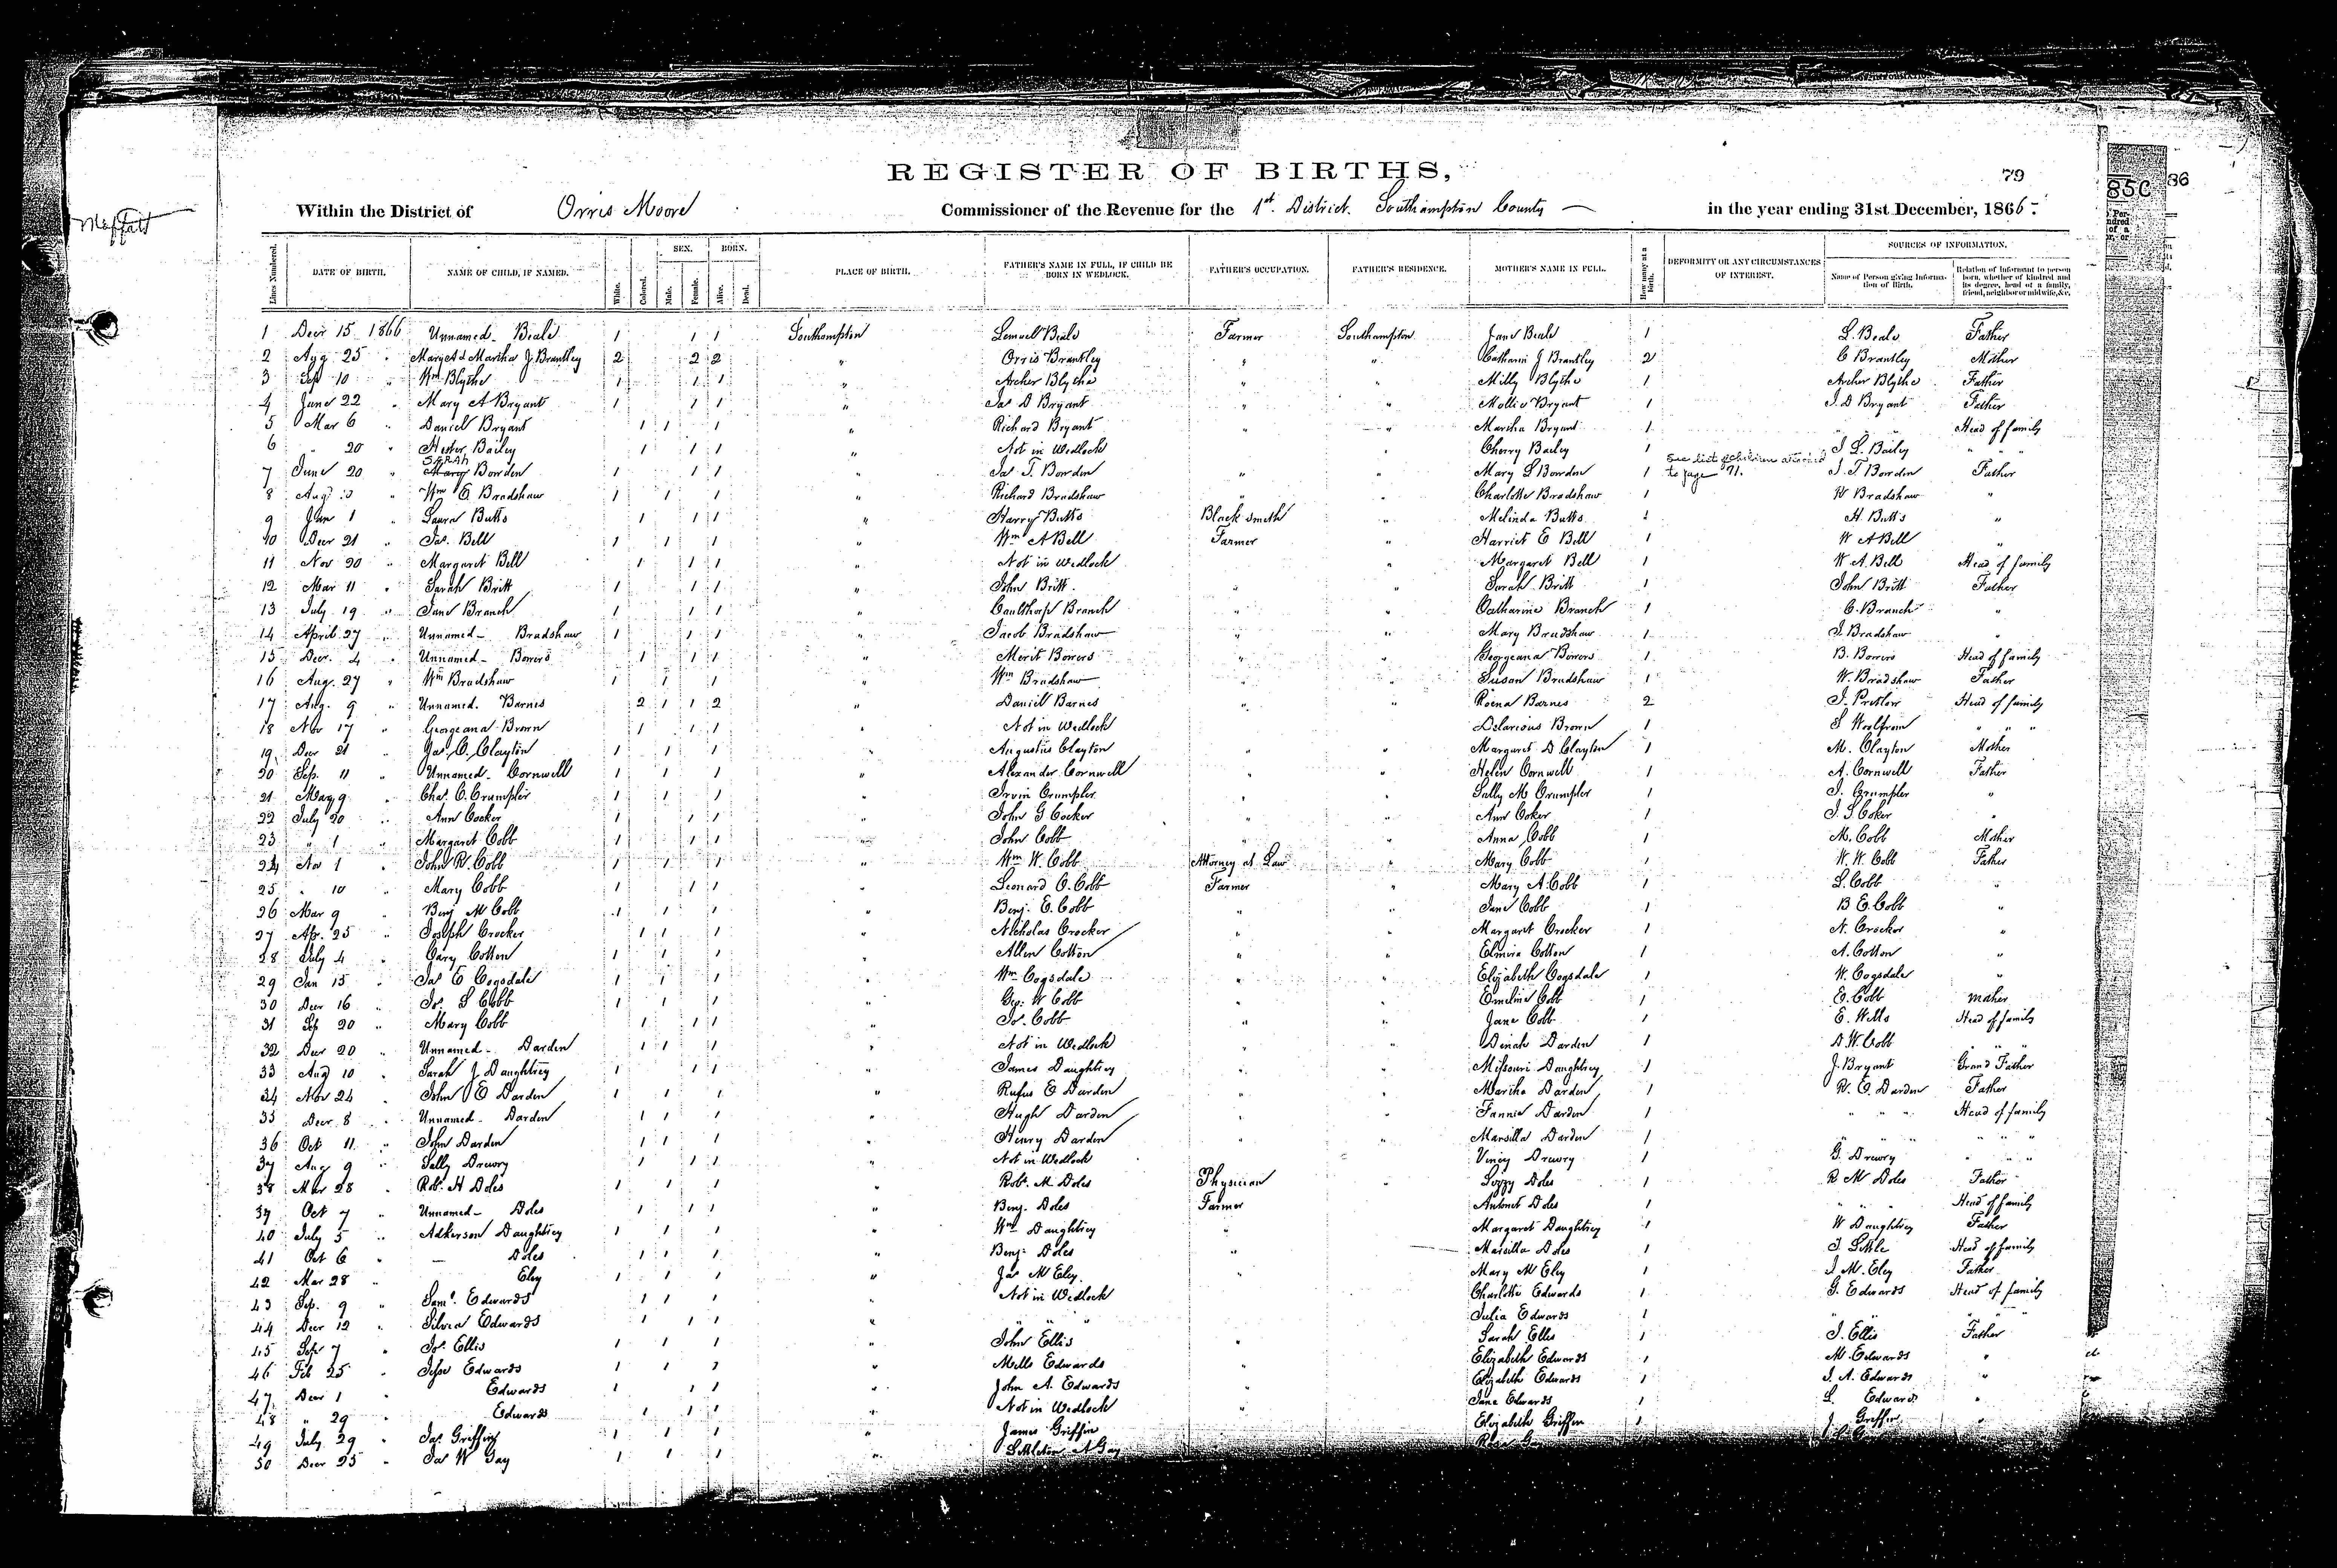 REGISTER OF BIRTHS,
79
Within the District of Orris Moore Commissioner of the Revenue for the 1st. District. Southampton County — in the year ending 31st December, 1866.
Moffatt
85C 86
Lines Numbered. DATE OF BIRTH. NAME OF CHILD, IF NAMED. White. Colored. SEX. Male. Female. BORN. Alive. Dead. PLACE OF BIRTH. FATHER'S NAME IN FULL, IF CHILD BE BORN IN WEDLOCK. FATHER'S OCCUPATION. FATHER'S RESIDENCE. MOTHER'S NAME IN FULL. How many at a birth. DEFORMITY OR ANY CIRCUMSTANCES OF INTEREST. SOURCES OF INFORMATION. Name of Person giving Information of Birth. Relation of Informant to person born, whether of kindred and its degree, head of a family, friend, neighbor or midwife, &c.
1 Decr 15 1866 Unnamed - Beale 1 1 1 Southampton Lemuel Beale Farmer Southampton Jane Beale 1 L. Beale Father
2 Aug 25 " Mary A & Martha J Brantley 2 2 2 " Orris Brantley " " Catharin J Brantley 2 C Brantley Mother
3 Sep 10 " Wm Blythe 1 1 1 " Archer Blythe " " Milly Blythe 1 Archer Blythe Father
4 June 22 " Mary A Bryant 1 1 1 " Jas D Bryant " " Mollie Bryant 1 J. D Bryant Father
5 Mar 6 " Daniel Bryant 1 1 1 " Richard Bryant " " Martha Bryant 1 " " " Head of family
6 " 20 " Hester Bailey 1 1 1 " Not in Wedlock " Cherry Bailey 1 J L. Bailey " "
7 June 20 " Mary SARAH Bowden 1 1 1 " Jas T. Bowden " " Mary L Bowden 1 see list of children attached to page 71. J. T Bowden Father
8 Aug " Wm E. Bradshaw 1 1 1 " Richard Bradshaw " " Charlotte Bradshaw 1 R Bradshaw "
9 Jan 1 " Laura Butts 1 1 1 " Harry Butts Black smith " Melinda Butts 1 H. Butts "
10 Decr 21 " Jas. Bell 1 1 1 " Wm A Bell Farmer " Harriet E Bell 1 W A Bell "
11 Nov 20 " Margaret Bell 1 1 1 " Not in Wedlock " Margaret Bell 1 W A. Bell Head of family
12 Mar 11 " Sarah Britt 1 1 1 " John Britt " " Sarah Britt 1 John Britt Father
13 July 19 " Jane Branch 1 1 1 " Caulthorp Branch " " Catharine Branch 1 C. Branch "
14 April 27 " Unnamed - Bradshaw 1 1 1 " Jacob Bradshaw " " Mary Bradshaw 1 J. Bradshaw "
15 Decr. 4 " Unnamed - Bowers 1 1 1 " Merit Bowers " " Georgeana Bowers 1 B. Bowers Head of family
16 Aug. 27 " Wm Bradshaw 1 1 1 " Wm Bradshaw " " Susan Bradshaw 1 W. Bradshaw Father
17 Aug. 9 " Unnamed. Barnes 2 1 1 2 " Daniel Barnes " " Roena Barnes 2 J. Pretlow Head of family
18 Nov 17 " Georgeana Brown 1 1 1 " Not in Wedlock Brown 1 " " "
19 Decr 21 " Jas. C. Clayton 1 1 1 " Augustus Clayton " " Margaret D Clayton 1 M. Clayton Mother
20 Sep. 11 " Unnamed - Cornwell 1 1 1 " Alexander Cornwell " " Helen Cornwell 1 A. Cornwell Father
21 May 9 " Chas. C. Crumpler 1 1 1 " Irvin Crumpler " " Sally M Crumpler 1 I. Crumpler "
22 July 20 " Ann Cocker 1 1 1 " John G Cocker " " Ann Coker 1 Coker "
23 " 1 " Margaret Cobb 1 1 1 " John Cobb " " Anna Cobb 1 M. Cobb Mother
24 Nov 1 " John R. Cobb 1 1 1 " Wm W. Cobb Attorney at Law " Mary Cobb 1 W. W. Cobb Father
25 " 10 " Mary Cobb 1 1 1 " Leonard O. Cobb Farmer " Mary A. Cobb 1 L. Cobb "
26 Mar 9 " Benj M Cobb 1 1 1 " Benj. E. Cobb " " Jane Cobb 1 B E. Cobb "
27 Ap. 25 " Joseph Crocker 1 1 1 " Nicholas Crocker " " Margaret Crocker 1 N. Crocker "
28 July 4 " Cary Cotton 1 1 1 " Allen Cotton " " Elmira Cotton 1 A. Cotton "
29 Jan 15 " Jas E Cogsdale 1 1 1 " Wm Cogsdale " " Elizabeth Cogsdale 1 W. Cogsdale "
30 Decr 16 " Jos. S Cobb 1 1 1 " Geo. W Cobb " " Emeline Cobb 1 E. Cobb Mother
31 Sep 20 " Mary Cobb 1 1 1 " Jos. Cobb " " Jane Cobb 1 E. Wills Head of family
32 Decr 20 " Unnamed - Darden 1 1 1 " Not in Wedlock " Dinah Darden 1 Cobb " " "
33 Aug 10 " Sarah J Daughtrey 1 1 1 " James Daughtrey " " Missouri Daughtrey 1 J. Bryant Grand Father
34 Nov 24 " John E Darden 1 1 1 " Rufus E Darden " " Martha Darden 1 R. E. Darden Father
35 Decr 8 " Unnamed - Darden 1 1 1 " Hugh Darden " " Fannie Darden 1 " " " Head of family
36 Oct 11 " John Darden 1 1 1 " Henry Darden " " Marsilla Darden 1 " " " " " "
37 Aug 9 " Sally Drewry 1 1 1 " Not in Wedlock Viney Drewry 1 G. Drewry " " "
38 Mar 28 " Robt. H Doles 1 1 1 " Robt. M. Doles Physician " Lizzy Doles 1 R M Doles Father
39 Oct 7 " Unnamed - Doles 1 1 1 " Benj. Doles Farmer Antonet Doles 1 " " " Head of family
40 July 5 " Adkerson Daughtrey 1 1 1 " Wm. Daughtrey " Margaret Daughtrey 1 W Daughtrey Father
41 Oct 6 " — Doles 1 1 1 " Benj. Doles " Marsilla Doles 1 J. Little Head of family
42 Mar 28 " Eley 1 1 1 " Jas M Eley. " Mary M Eley 1 J. M. Eley Father
43 Sep. 9 " Saml. Edwards 1 1 1 " Not in Wedlock Charlotte Edwards 1 G. Edwards Head of family
44 Decr 12 " Silvia Edwards 1 1 1 " " " " Julia Edwards 1 " " "
45 Sep 7 " Jos. Ellis 1 1 1 " John Ellis " Sarah Ellis 1 J. Ellis Father
46 Feb 25 " Jesse Edwards 1 1 1 " Mills Edwards " Elizabeth Edwards 1 M. Edwards "
47 Decr 1 " Edwards 1 1 1 " John A. Edwards " Elizabeth Edwards 1 J. A. Edwards "
48 " 29 " Edwards 1 1 1 " Not in Wedlock " Jane Edwards 1 L. Edwards "
49 July 29 " Jas. Griffin 1 1 1 " James Griffin Elizabeth Griffin 1 J. Griffin "
50 Decr 25 " Jas W Gay 1 1 1 " Littleton N Gay